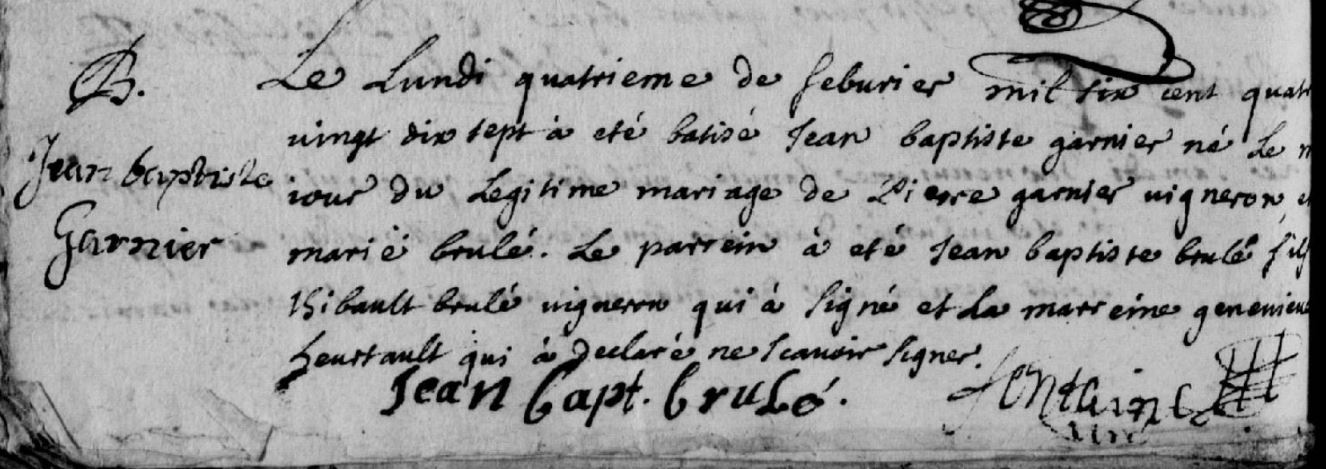 B.
Jean baptiste
Garnier
Le Lundi quatrieme de feburier mil six cent quatr
vingt dix sept à eté batisé Jean baptiste garnier né Le m
iour du Legitime mariage de Pierre garnier uigneron e
marië brulé. Le parrein à eté Jean baptiste brulé fils
thibault brulé uigneron qui à signé et La marreine geneuieue
heurtault qui à declaré ne scauoir signer.
Jean bapt. brulé.
fontaine